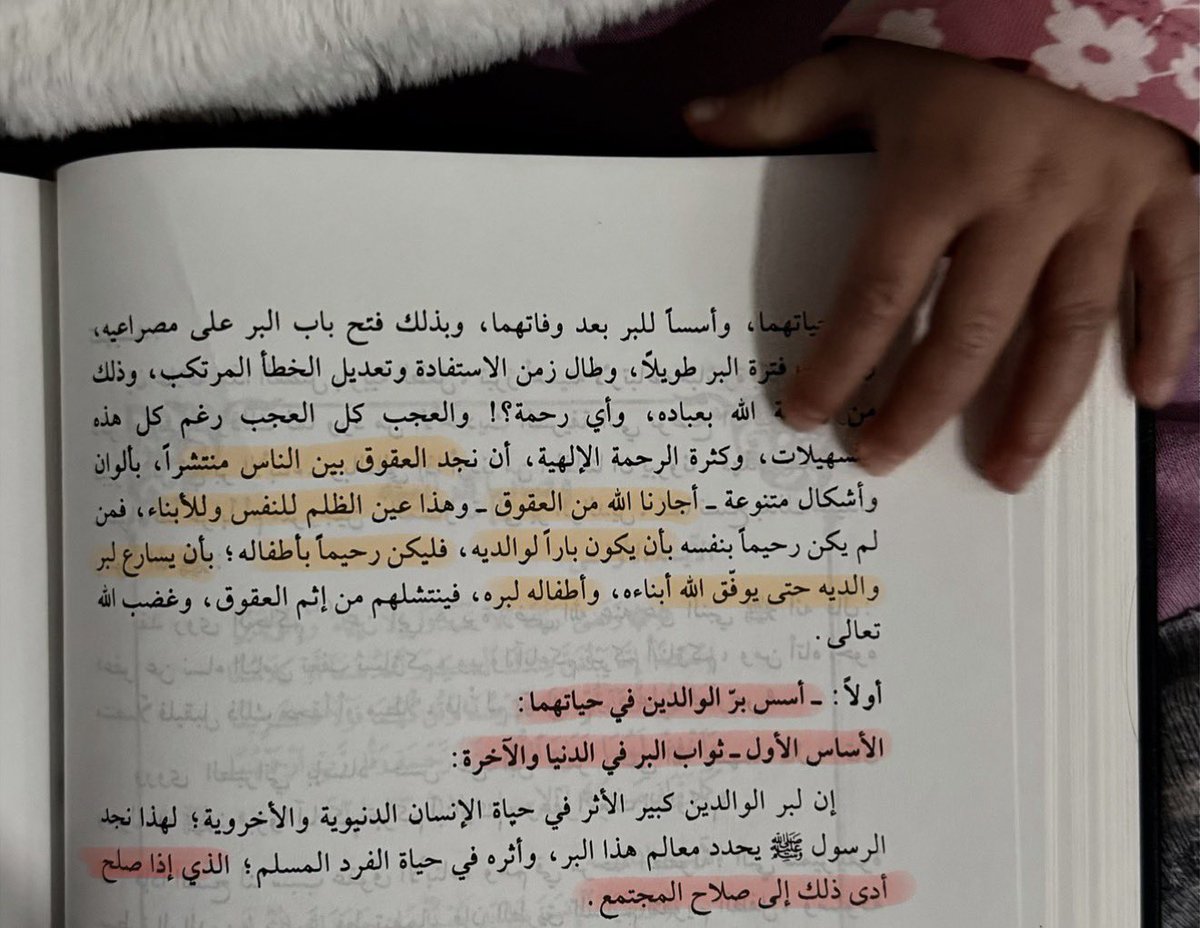 حياتهما، وأسساً للبر بعد وفاتهما، وبذلك فتح باب البر على مصراعيه،
فترة البر طويلاً، وطال زمن الاستفادة وتعديل الخطأ المرتكب، وذلك
من الله بعباده، وأي رحمة؟! والعجب كل العجب رغم كل هذه
التسهيلات، وكثرة الرحمة الإلهية، أن نجد العقوق بين الناس منتشراً، بألوان
وأشكال متنوعة ـ أجارنا الله من العقوق ـ وهذا عين الظلم للنفس وللأبناء، فمن
لم يكن رحيماً بنفسه بأن يكون باراً لوالديه، فليكن رحيماً بأطفاله؛ بأن يسارع لبر
والديه حتى يوفّق الله أبناءه، وأطفاله لبره، فينتشلهم من إثم العقوق، وغضب الله
تعالى.
أولاً: ـ أسس برّ الوالدين في حياتهما:
الأساس الأول ـ ثواب البر في الدنيا والآخرة:
إن لبر الوالدين كبير الأثر في حياة الإنسان الدنيوية والأخروية؛ لهذا نجد
الرسول ﷺ يحدد معالم هذا البر، وأثره في حياة الفرد المسلم؛ الذي إذا صلح
أدى ذلك إلى صلاح المجتمع.